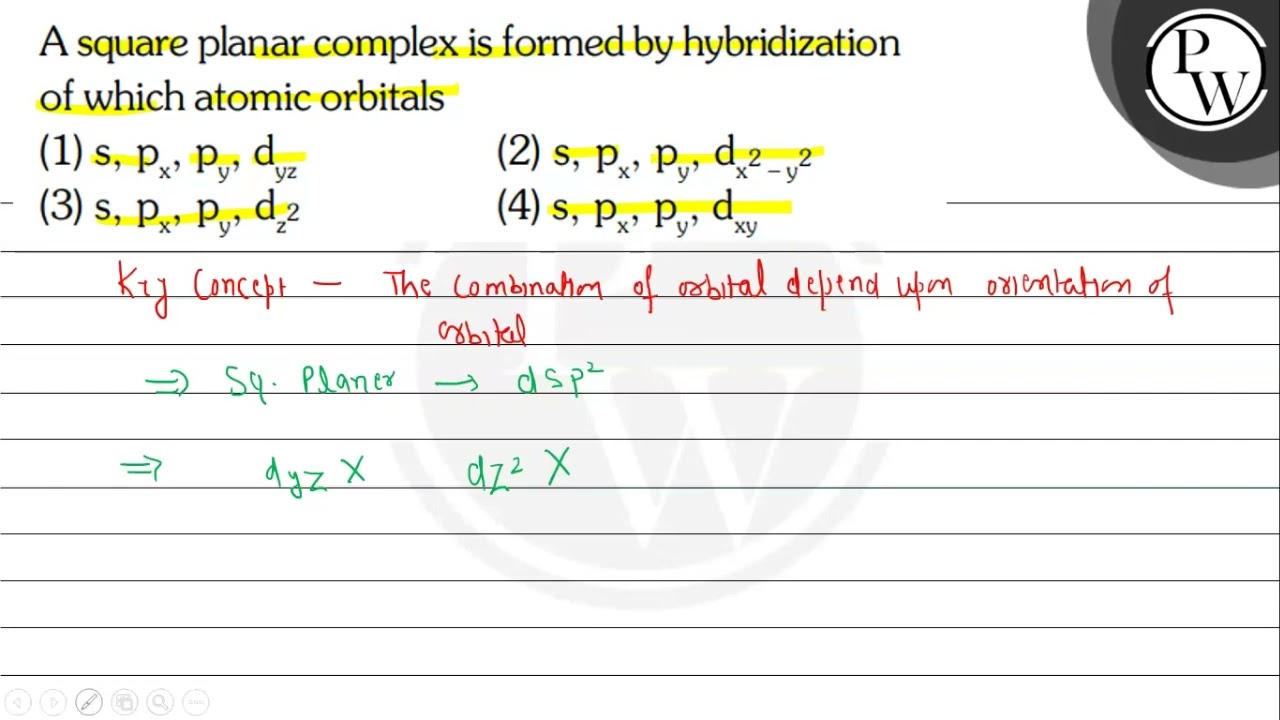 A square planar complex is formed by hybridization
of which atomic orbitals
(1) s, pₓ, p_y, d_yz (2) s, pₓ, p_y, d_x²–y²
(3) s, pₓ, p_y, d_z² (4) s, pₓ, p_y, d_xy
P
W
Key Concept – The Combination of orbital depend upon orientation of
orbital
⇒ Sq. Planer → dsp²
⇒ dyz X dz² X